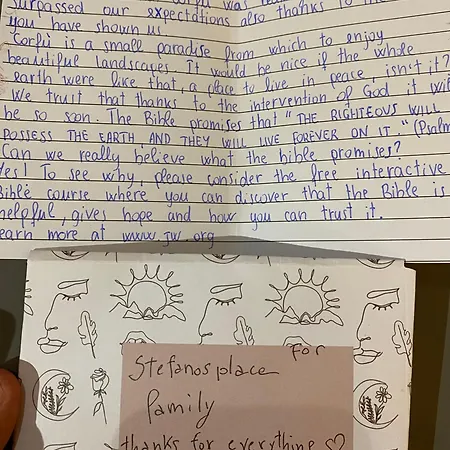 surpassed our expectations also thanks to the
you have shown us
Corfù is a small paradise from which to enjoy
beautiful landscapes It would be nice if the whole
earth were like that, a place to live in peace, isn't it?
We trust that thanks to the intervention of God it will
be so soon. The Bible promises that "THE RIGHTEOUS WILL
POSSESS THE EARTH AND THEY WILL LIVE FOREVER ON IT." (Psalm
Can we really believe what the bible promises?
Yes! To see why, please consider the free interactive
Bible course where you can discover that the Bible is
helpful, gives hope and how you can trust it.
earn more at www.jw.org
for
Stefanosplace
Pamily
thanks for everything ♡